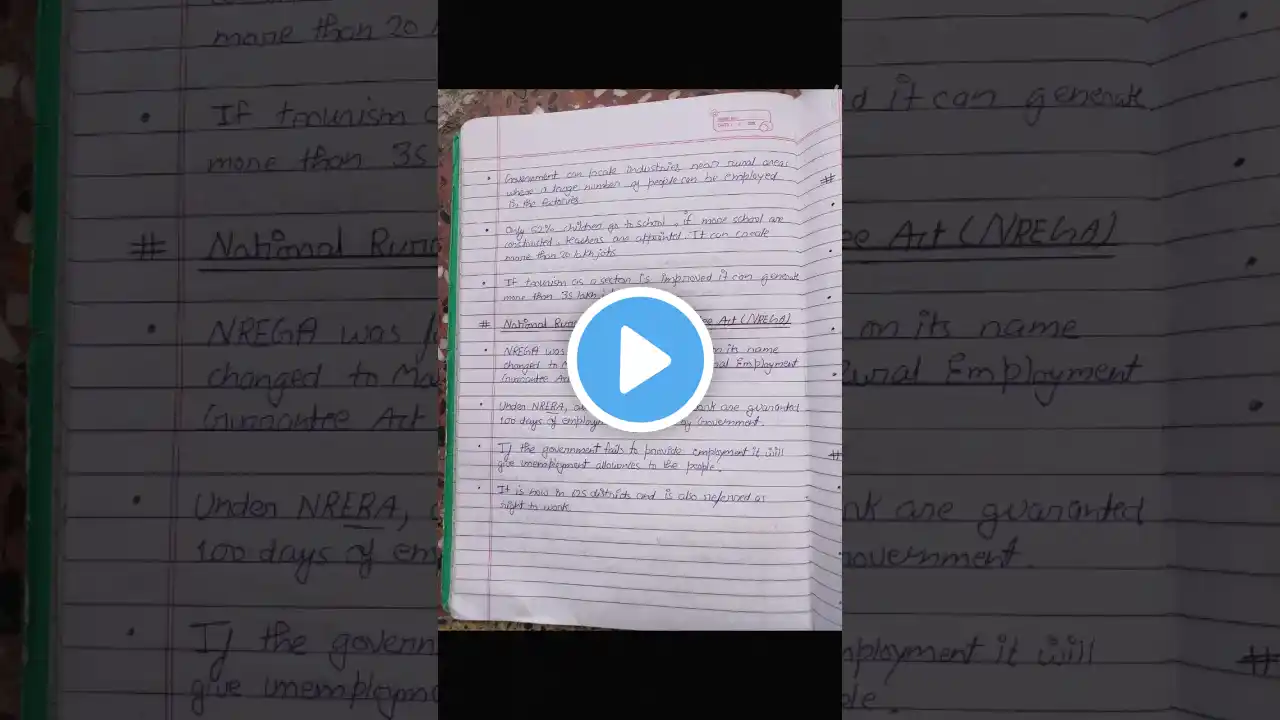 Government can locate industries near rural areas
where a large number of people can be employed
in the factories
Only 52% children go to school, if more school are
constructed, teachers are appointed. It can create
more than 20 lakh jobs
If tourism as a sector is improved it can generate
more than 35 lakh
# National Rural Act (NREGA)
NREGA was on its name
changed to Rural Employment
Guarantee Act
Under NRERA, are guaranted
100 days of by Government.
If the government fails to provide employment it will
give unemployment allowances to the people.
It is now in 625 districts and is also referred as
right to work